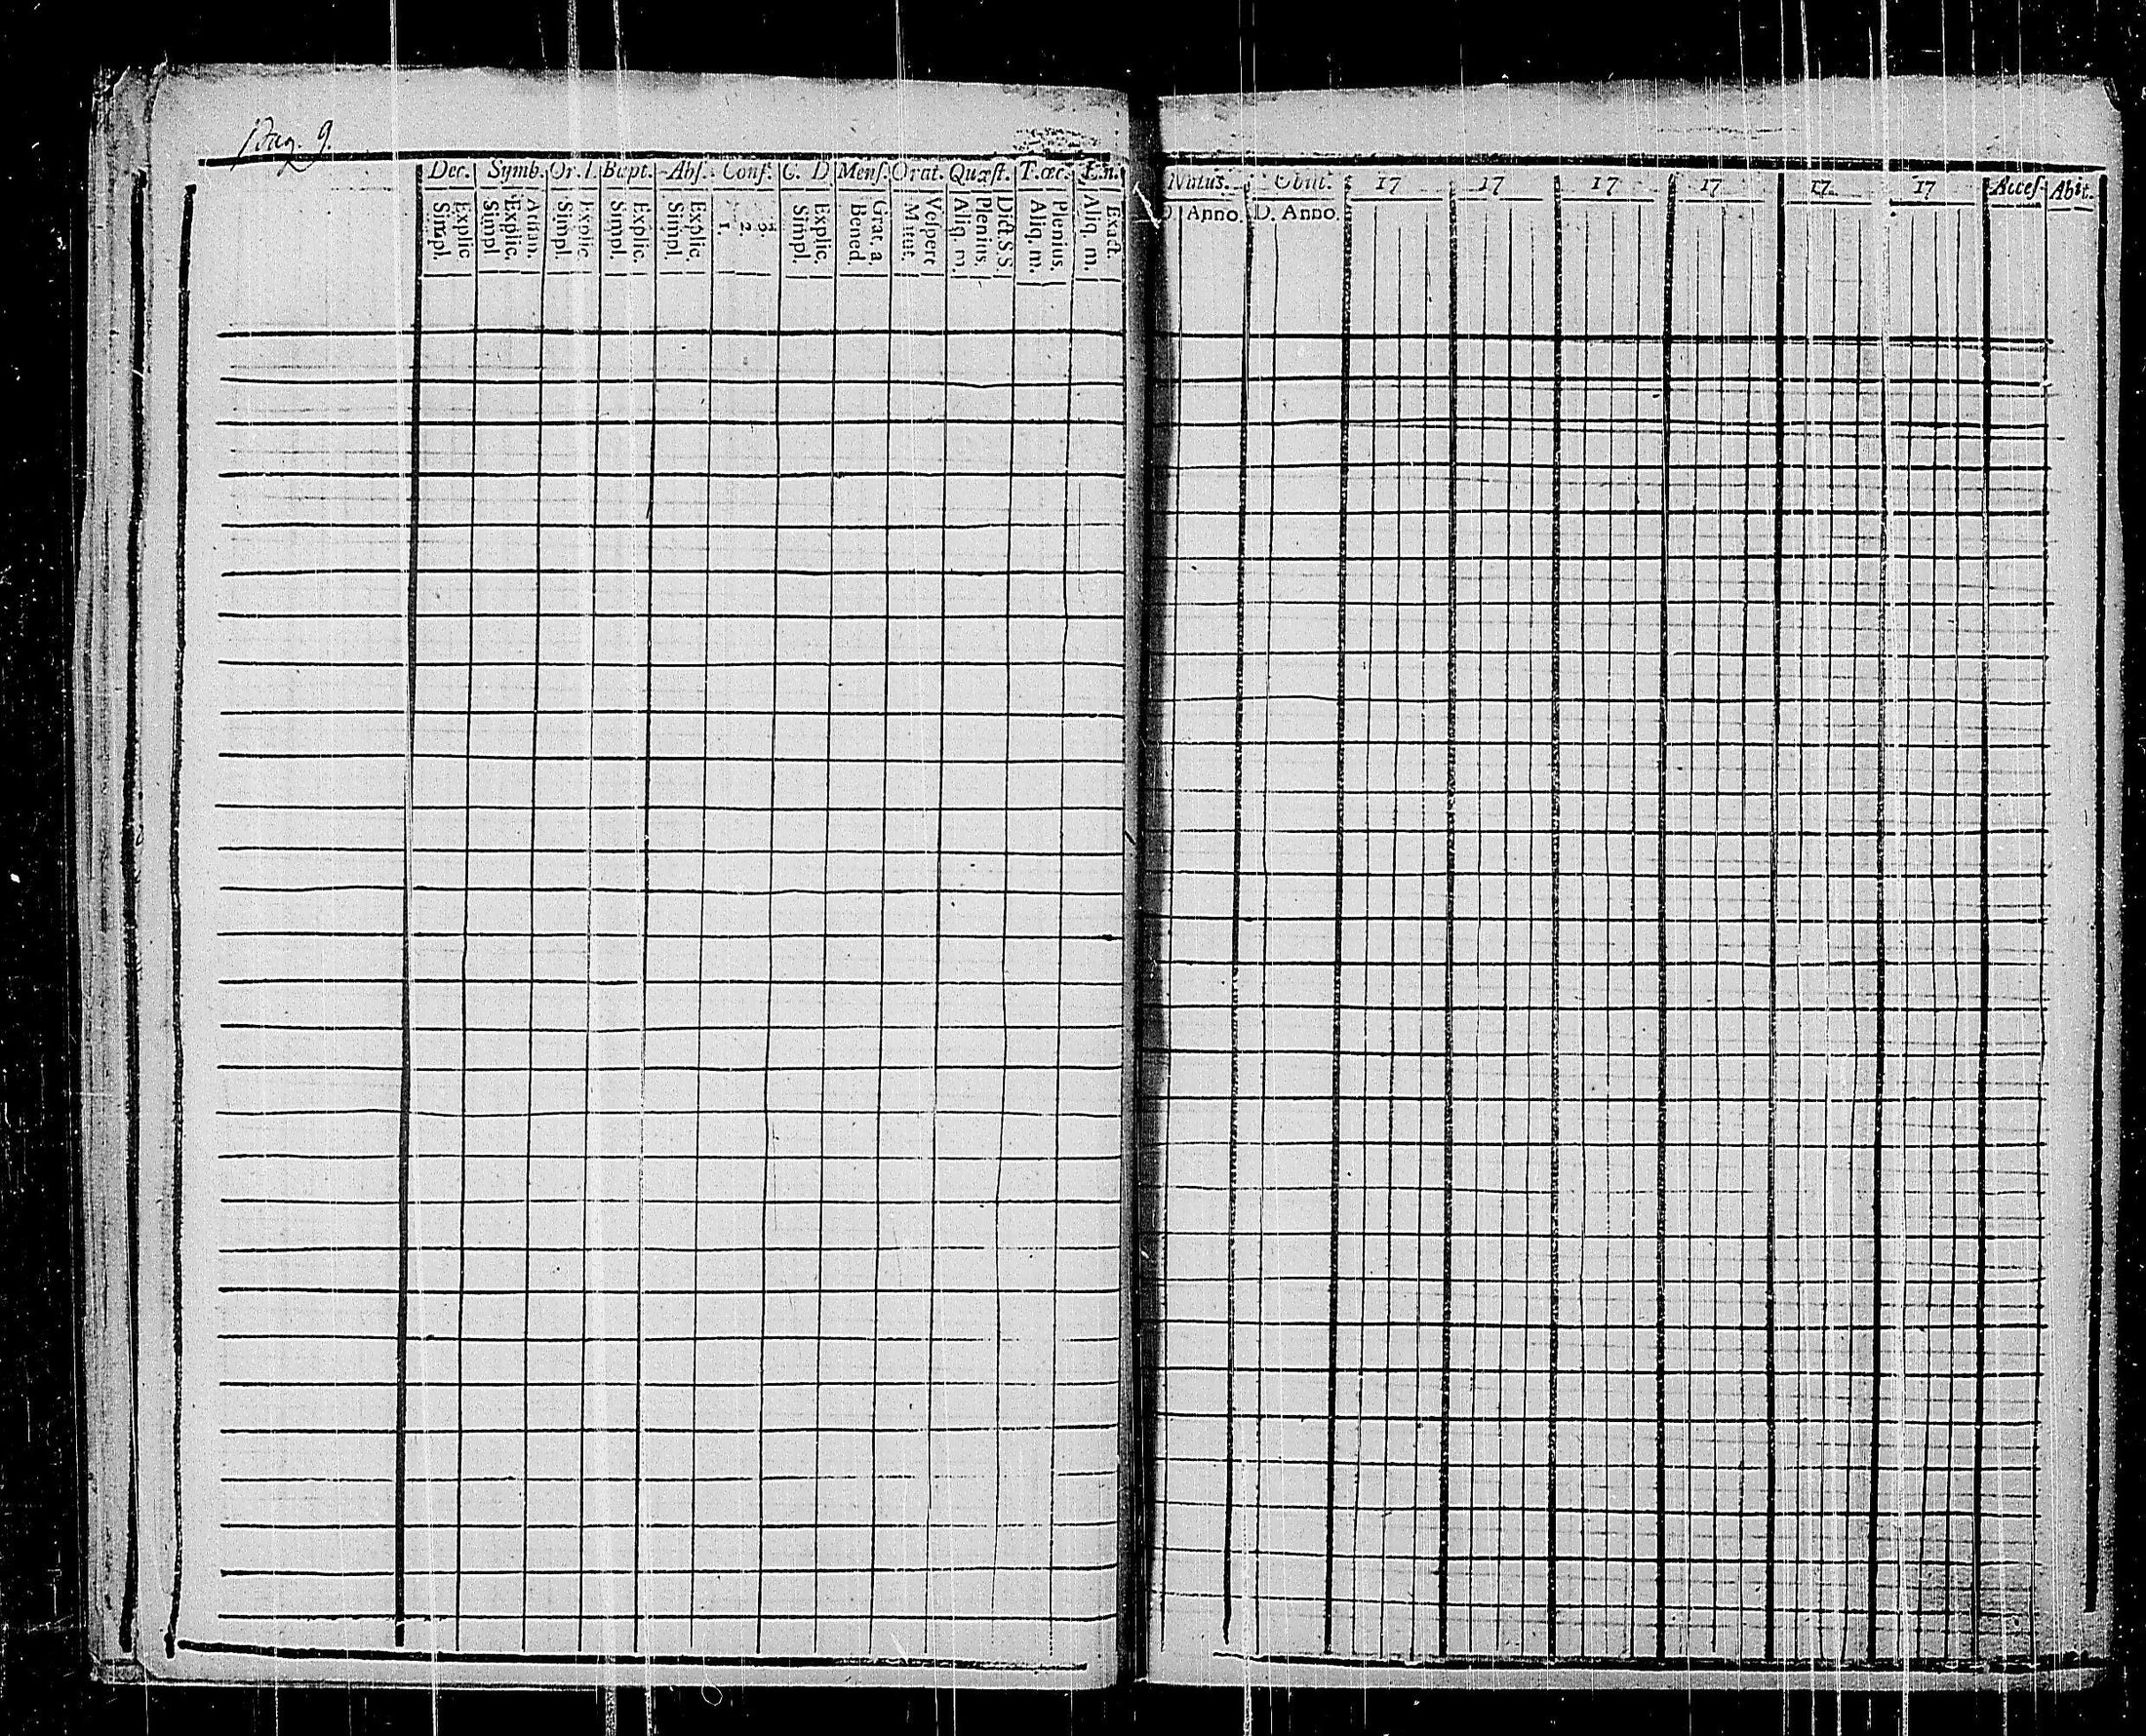 Pag. 9.
Dec. Symb. Or. D. Bapt. Abſ. Conf. C. D. Menſ. Orat. Quæſt. T. œc.
Simpl. Explic. Simpl. Explic. Athan. Simpl. Explic. Simpl. Explic. Simpl. Explic. 1. 2. 3. Simpl. Explic. Bened. Grat. a. Matut. Veſpert. Aliq. m. Plenius. Dict. S. S. Aliq. m. Plenius. Aliq. m. Exact.
Natus. Obiit. 17 17 17 17 17 17 Acceſ. Abit.
D. Anno. D. Anno.